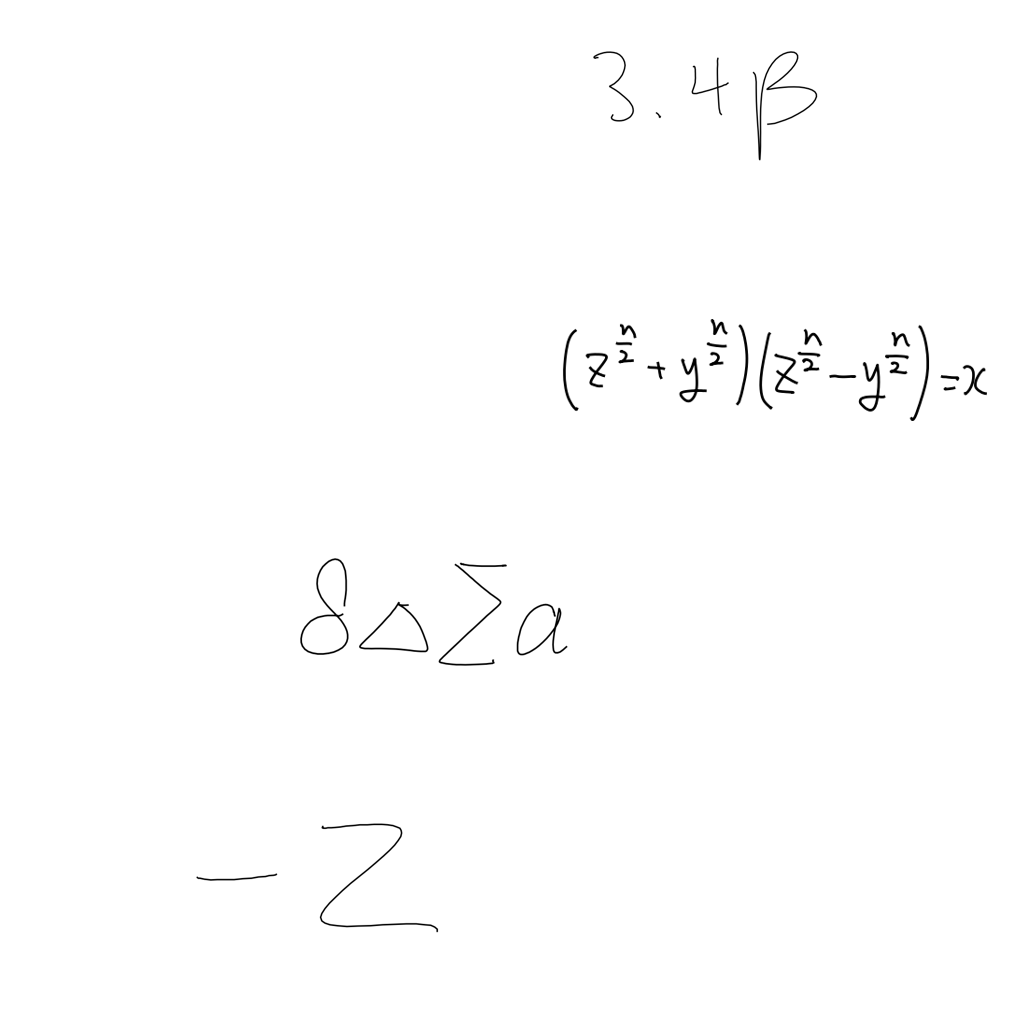 3.4β
(z^{\frac{n}{2}}+y^{\frac{n}{2}})(z^{\frac{n}{2}}-y^{\frac{n}{2}})=x
8Δ∑a
-Z